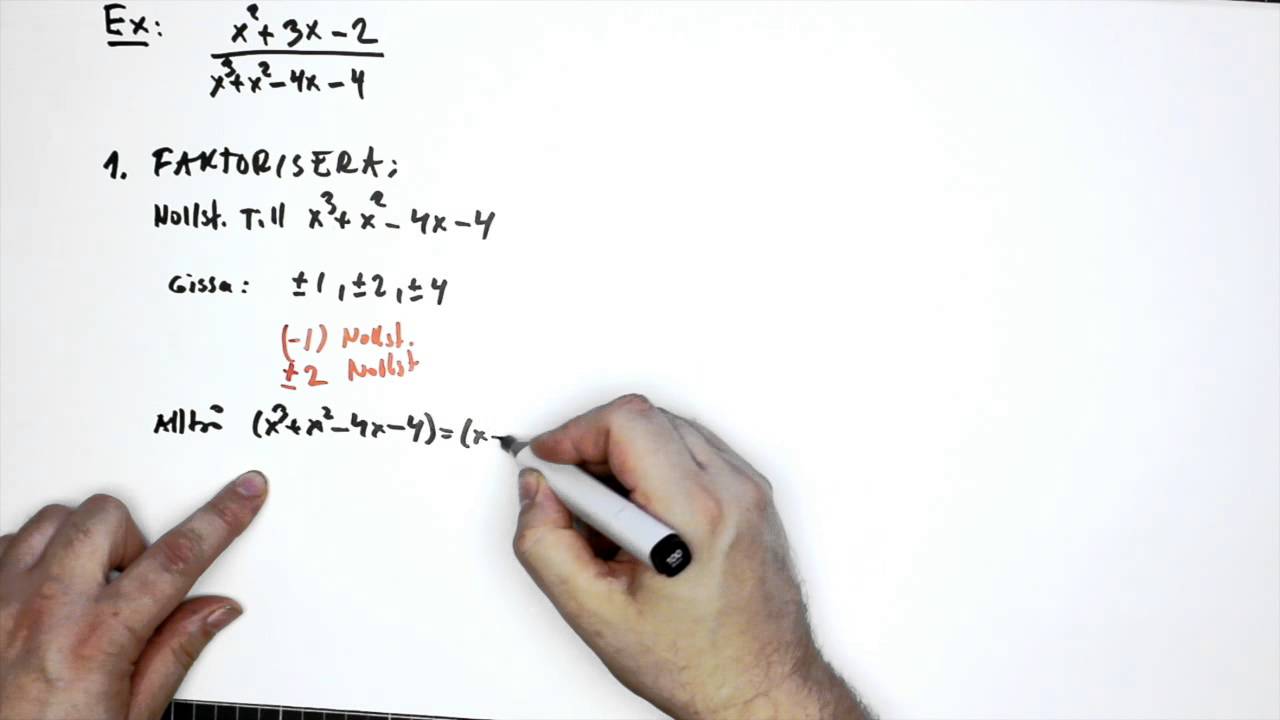 Ex: x²+3x-2
x³+x²-4x-4
1. FAKTORISERA:
Nollst. Till x³+x²-4x-4
Gissa: ±1, ±2, ±4
(-1) Nollst.
±2 Nollst
Alltså (x³+x²-4x-4)=(x-
100